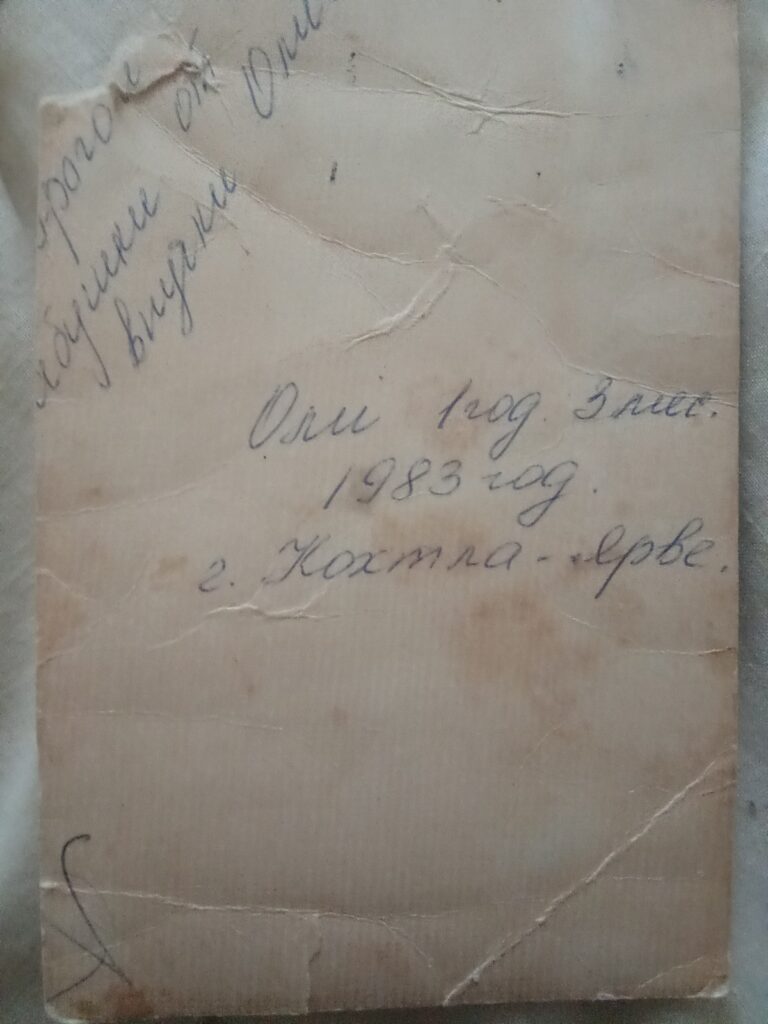 дорогой
бабушки от
внучки Оли
Оли 1 год. 3 мес.
1983 год.
г. Кохтла-Ярве.